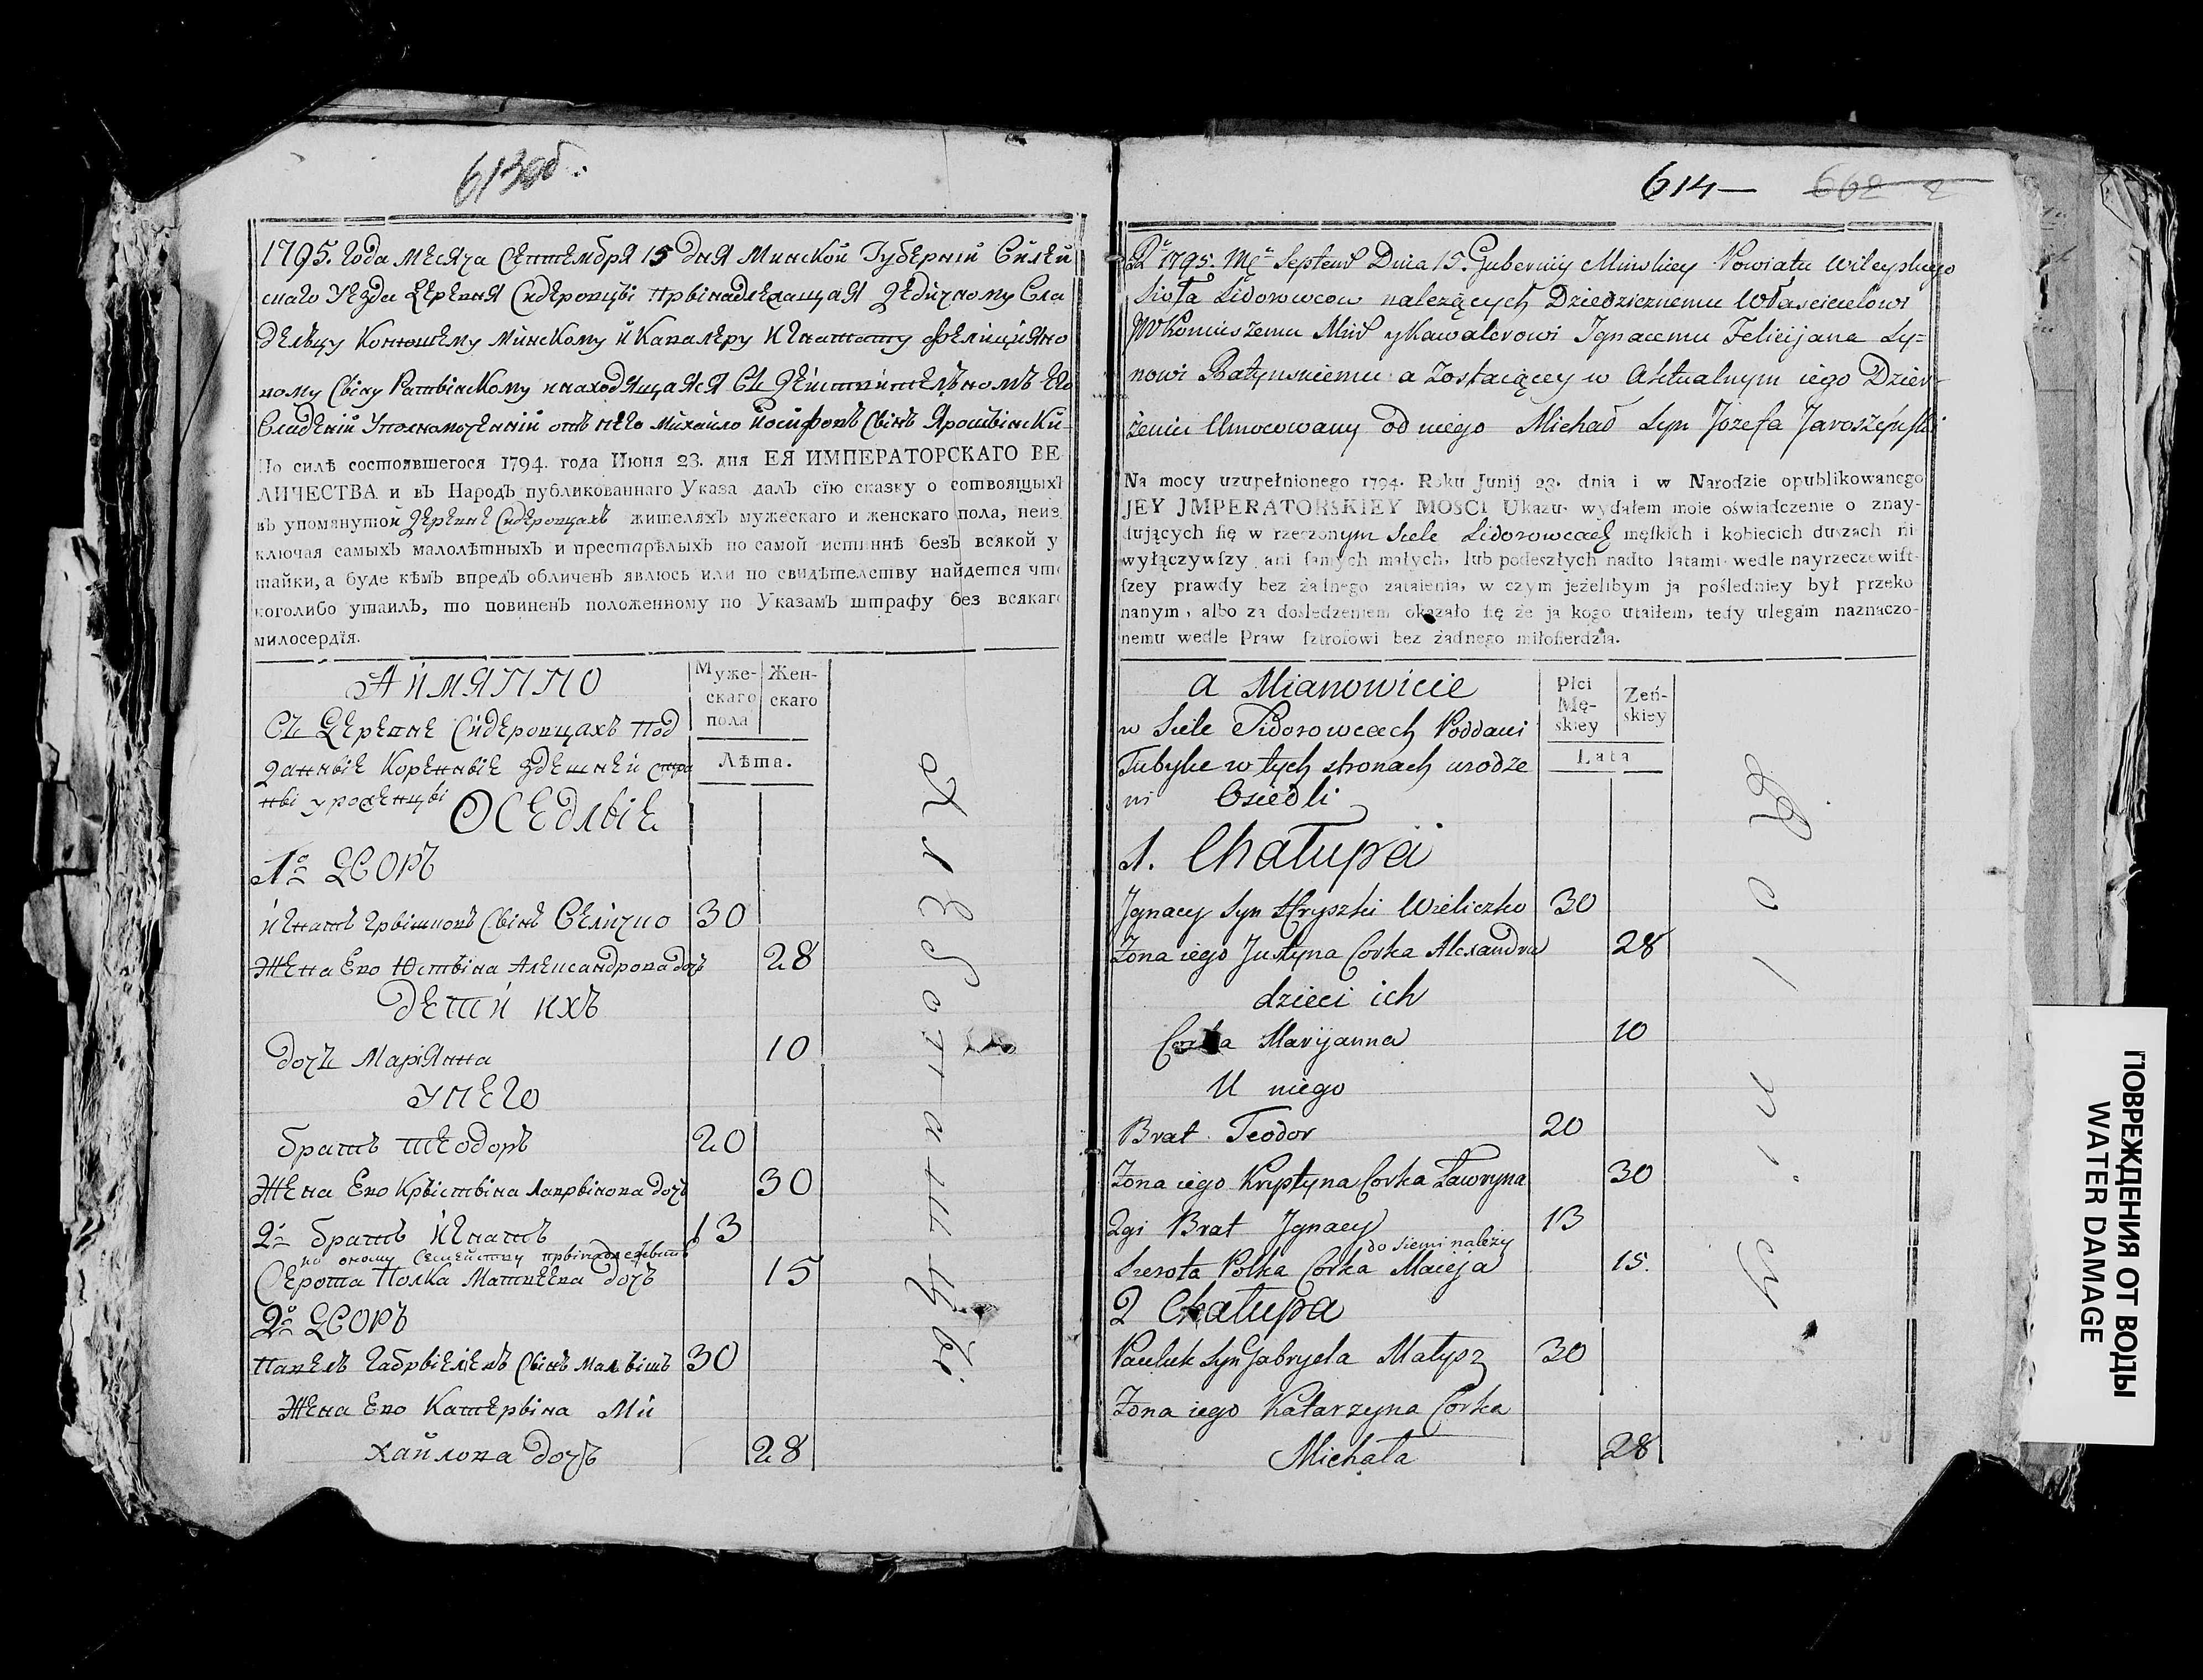 613об.
1795. года месяча Септембря 15 дня Минской Губерніи Вилей
скаго Уезда Деревня Сидеровцы принадлежащая Дедичному Вла
дельцу Конюшему Минскому и Кавалеру Игнатому Фелициано
вому Сыну Ратынскому инаходящаяся Въ Действительномъ его
Владеніи Уполномоченній отъ него Михайло Иосифовъ Сынъ Ярошынски
По силѣ состоявшегося 1794. года Июня 23. дня ЕЯ ИМПЕРАТОРСКАГО ВЕ
ЛИЧЕСТВА и въ Народъ публикованнаго Указа далъ сію сказку о сотвоящыхъ
въ упомянутой Деревне Сидеровцахъ жителяхъ мужескаго и женскаго пола, неиз
ключая самыхъ малолѣтныхъ и престарѣлыхъ по самой истиннѣ безъ всякой у
тайки, а буде кѣмъ впредъ обличенъ явлюсь или по свидѣтелству найдется что
коголибо утаилъ, то повиненъ положенному по Указамъ штрафу без всякаго
милосердія.
Аймянно
Въ Деревне Сидеровцахъ Под
данные Коренные Здешней стра
ны уроженцы Оседлые
Муже-
скаго
пола
Жен-
скаго
Лѣта.
1й Дворъ
Игнатъ Грышковъ Сынъ Величко 30
Жена Ево Юстына Александрова дочь 28
Дети ихъ
дочь Маріянна 10
У него
братъ Теодоръ 20
Жена Ево Крыстына Лаврынова дочь 30
2й братъ Игнатъ 13
ко оному семейству принадлежытъ
Сирота Полка Матвеева дочь 15
2й Дворъ
Павелъ Габрыелевъ Сынъ Малышъ 30
Жена Ево Катерына Ми
хайлова дочь 28
614— 662
R 1795. Mca Septem Dnia 15. Gubernij Minskiey Powiatu Wileyskiego
Sioła Sidorowcow należących Dziedzicznemu Właścicielowi
JW Koniuszemu Min y Kawalerowi Jgnacemu Felicijana Sy=
nowi Ratynskiemu a zostaiącey w Aktualnym iego Dzier-
żeniu Umocowany od niego Michał Syn Józefa Jaroszyński
Na mocy uzupełnionego 1794. Roku Junij 23. dnia i w Narodzie opublikowanego
JEY JMPERATORSKIEY MOSCI Ukazu. wydałem moie oświadczenie o znay-
duiących się w rzeczonym Siele Sidorowcach męskich i kobiecich duszach ni
wyłączywszy ani samych małych, lub podeszłych nadto latami wedle nayrzeczewist-
szey prawdy bez żadnego zataienia, w czym jeżelibym ja poślednieу był przeko
nanym, albo za dośledzeniem okazało się że ja kogo utaiłem, tedy ulegam naznaczo-
nemu wedle Praw sztrofowi bez żadnego miłosierdzia.
a Mianowicie
w Siele Sidorowcach Poddani
Tubylce w tych stronach urodze
ni Osiedli
Płci
Mę-
skiey
Żeń-
skiey
Lata
1. Chałupa
Jgnacy Syn Hryszki Wieliczko 30
Żona iego Justyna Corka Alexandra 28
dzieci ich
Corka Maryjanna 10
U niego
Brat Teodor 20
Żona iego Krystyna Corka Ławryna 30
2gi Brat Jgnacy 13
do siemi należy
Szerota Polka Corka Macieja 15.
2 Chałupa
Pauluk Syn Gabryela Małysz 30
Żona iego Katarzyna Corka
Michała 28
ПОВРЕЖДЕНИЯ ОТ ВОДЫ
WATER DAMAGE